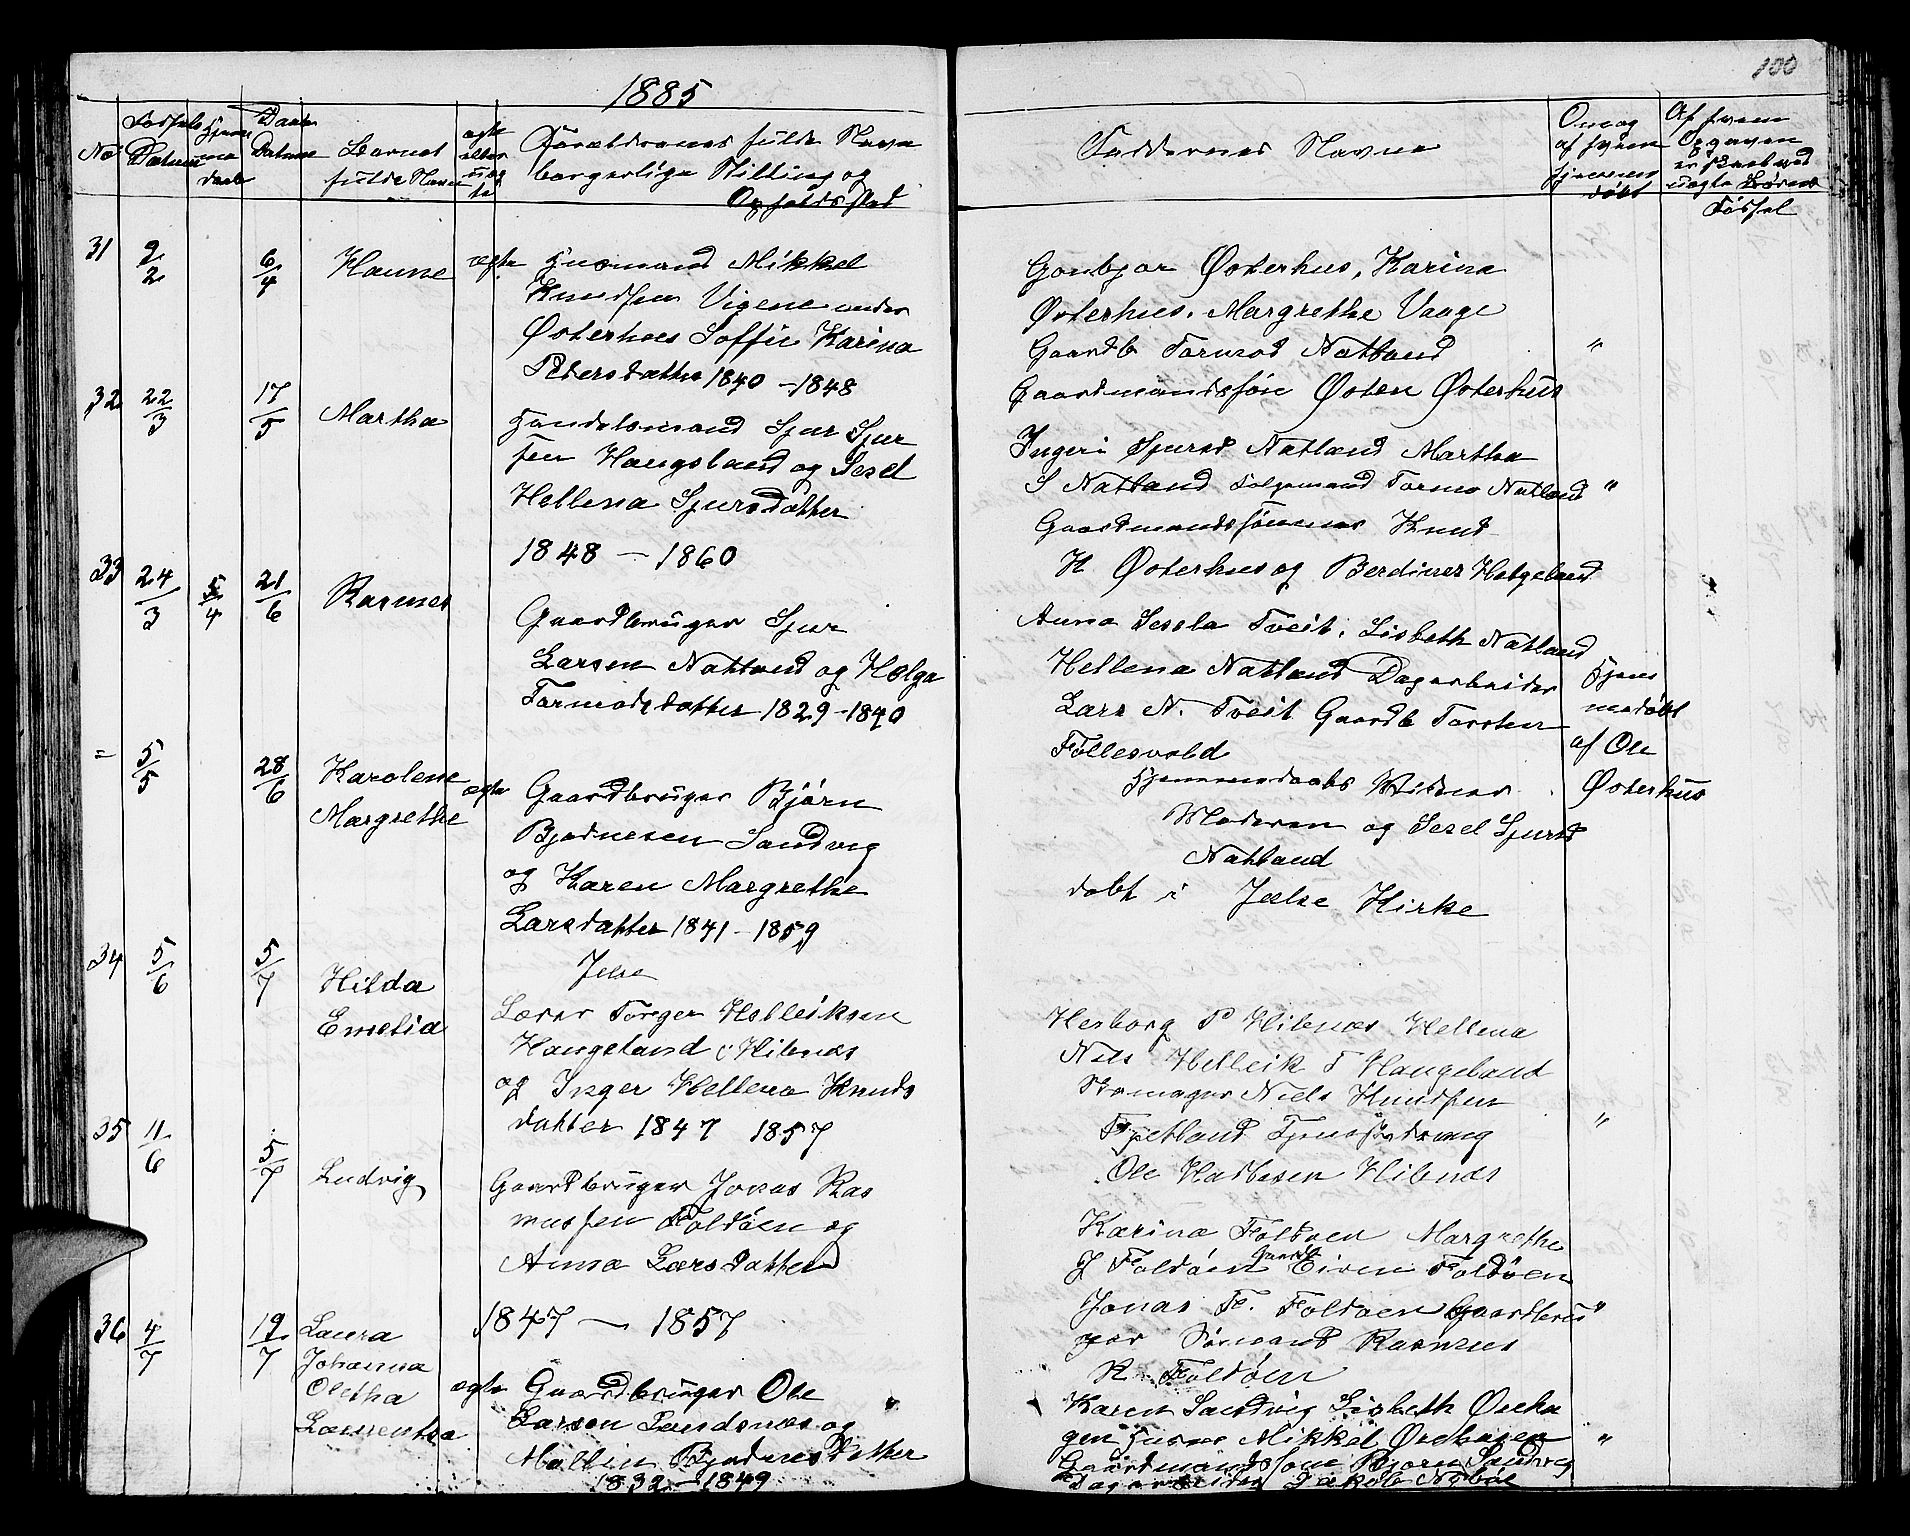 1885
100
No
Datum
Daab
Datum
Barnets
fulde Navn
Forældrenes fulde Navn
borgerlige Stilling og
Opholdssted
Faddernes Navne
Om og
af hvem
hjemme
døbt
Af hvem
Opgaven
uægte Børns
Fødsel
31 2/2 6/4 Hanne ægte Huusmand Mikkel
Knudsen Vigene under
Østerhus Soffie Karina
Pedersdatter 1840 - 1848
Gonbjor Østerhus, Karina
Østerhus. Margrethe Vaage
Gaardb Tormod Natland "
Gaardmandssøn Østen Østerhus
32 22/3 17/5 Martha Handelsmand Sjur Sjur
sen Haugsland og Sesel
Hellena Sjursdatter
1848 - 1860
Ingeri Sjursd Natland Martha
S Natland Tormo Natland "
Gaardmandssønnes Knud
H Østerhus og Berdines Helgeland
33 24/3 5/4 21/6 Rasmus
Gaardbruger Sjur
Larsen Natland og Helga
Tormodsdatter 1829 - 1840
Anna Sesela Tveit. Lisbeth Natland
Hellena Natland Dagarbeider
Lars N. Tveit Gaardb Torsten
Follesvold
Hjemmedaabs Vidner
Moderen og Sesel Sjursd
Natland
Hjem
medøbt
af Ole
Østerhus
= 5/5 28/6 Karolene
Margrethe
ægte Gaardbruger Bjørn
Bjødnesen Sandvig
og Karen Margrethe
Larsdatter 1841 - 1859
Jelse
døbt i Jælse Kirke
34 5/6 5/7 Hilda
Emelia
Lærer Torger Helleiksen
Haugeland i Hibnæs
og Inger Hellena Knuds
datter 1847 1857
Herborg P Hibnæs Hellena
Nils Helleik T Haugeland
Skomager Niels Knudsen
Fjetland Tjenestedreng "
Ole Halvesen Hibnæs
35 11/6 5/7 Ludvig
Gaardbruger Jonas Ras
mussen Foldøen og
Anna Larsdatter
1847 - 1857
Karina Foldøen Margrethe
J Foldøen Gaardb Eiven Foldøen
Jonas F. Foldøen Gaardbru "
ger Sømand Rasmus
R Foldøen
36 4/7 19/7 Laura
Johanna
Oletha
Laurentza
ægte Gaardbruger Ole
Larsen Sandsnæs og
Mallin Bjødnesdatter
1832 - 1849
Karen Sandvig Lisbeth Øreha
gen Huusm Mikkel Ørehagen "
Gaardmandssøne Bjørn Sandvig
Dagarbeider Jakob